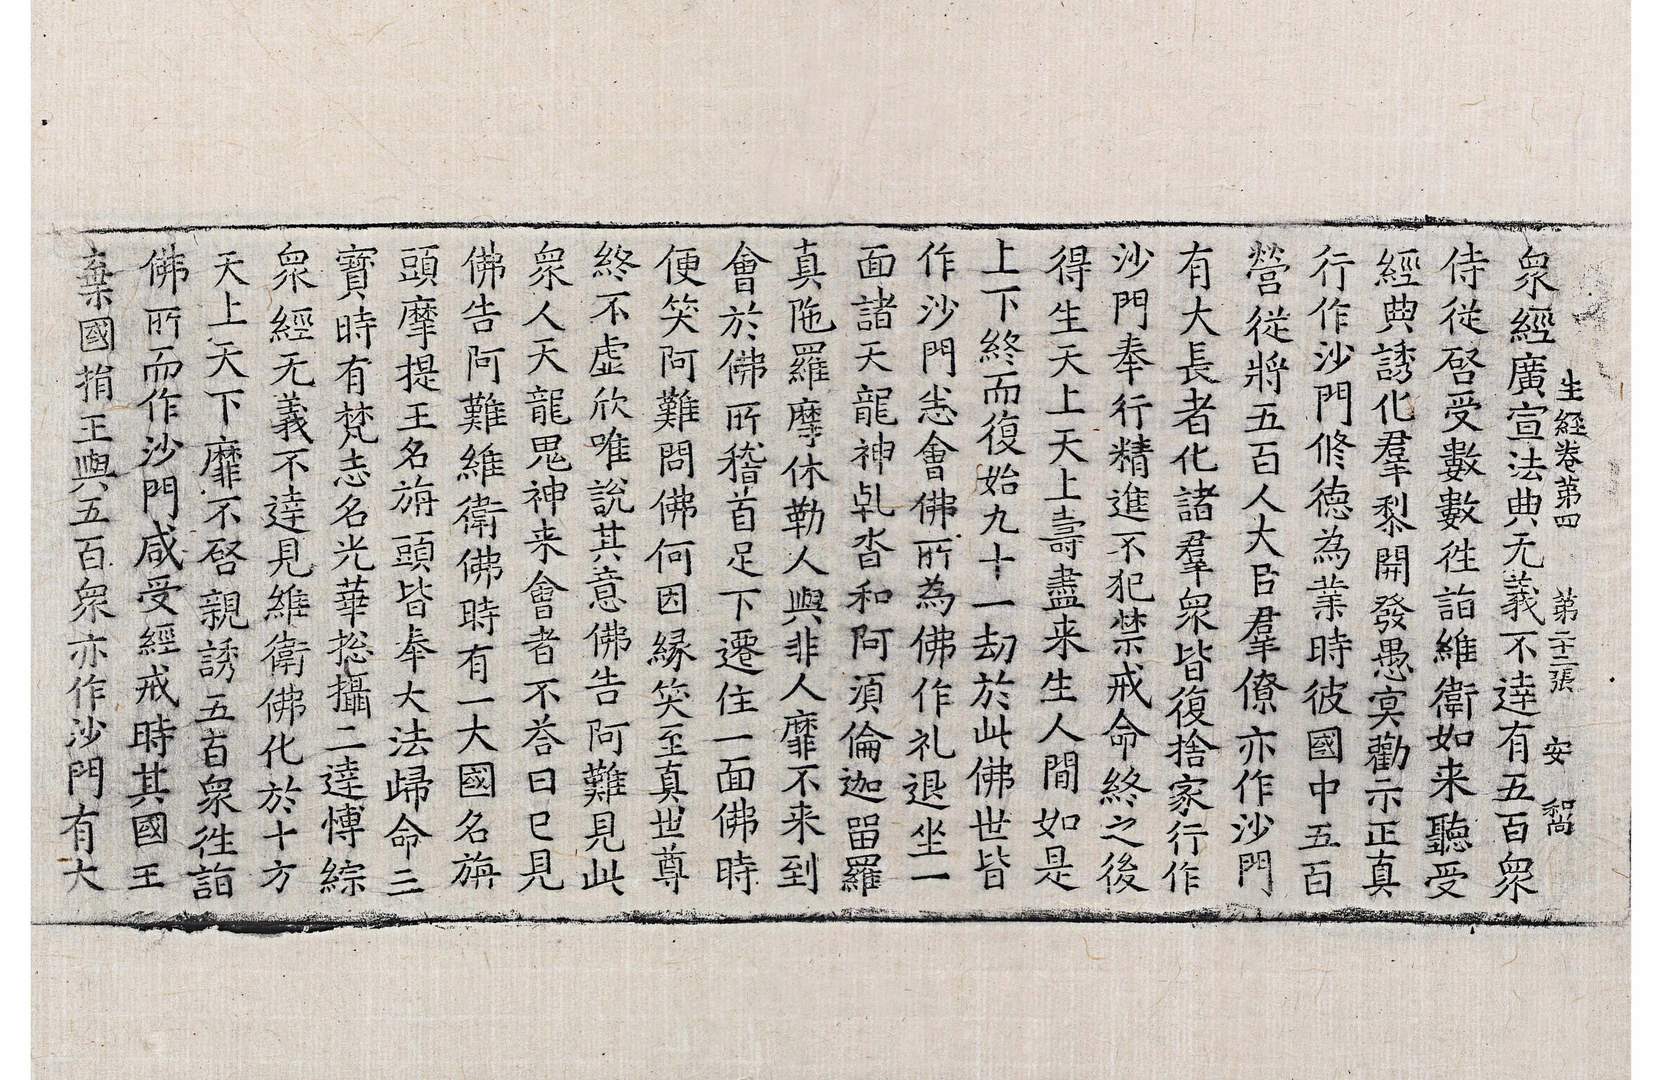 生經卷第四　第二十二張　安
衆經廣宣法典无義不達有五百衆
侍從啓受數數徃詣維衛如来聽受
經典誘化羣黎開發愚冥勸示正真
行作沙門修德為業時彼國中五百
營從將五百人大臣羣僚亦作沙門
有大長者化諸羣衆皆復捨家行作
沙門奉行精進不犯禁戒命終之後
得生天上天上壽盡来生人間如是
上下終而復始九十一劫於此佛世皆
作沙門悉會佛所為佛作礼退坐一
面諸天龍神乹沓和阿湏倫迦畱羅
真陁羅摩休勒人與非人靡不来到
會於佛所稽首足下遷住一面佛時
便笑阿難問佛何因縁笑至真世尊
終不虛欣唯說其意佛告阿難見此
衆人天龍鬼神来會者不荅曰已見
佛告阿難維衛佛時有一大國名旃
頭摩提王名旃頭皆奉大法歸命三
寶時有梵志名光華捴攝二達愽綜
衆經无義不達見維衛佛化於十方
天上天下靡不啓親誘五百衆徃詣
佛所而作沙門咸受經戒時其國王
棄國捐王與五百衆亦作沙門有大